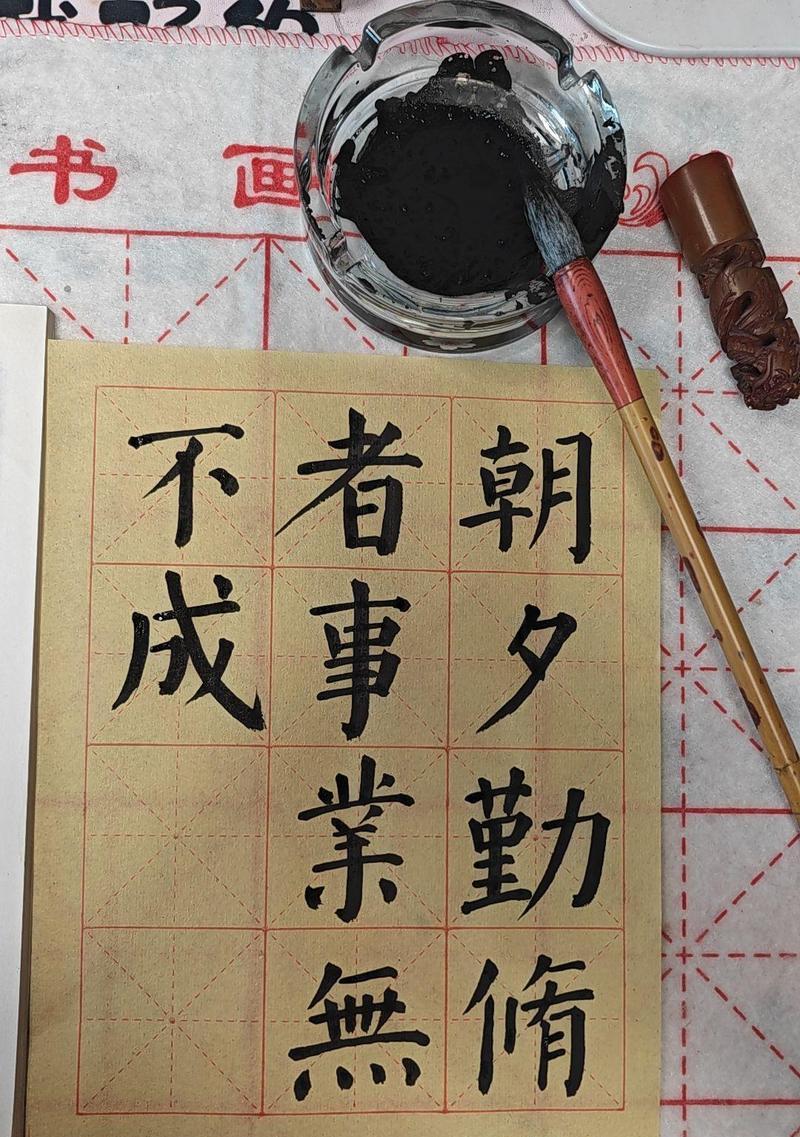 书画
朝夕勤脩
者事業無
不成